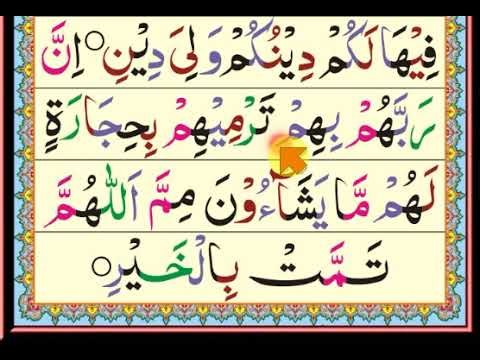 فِيْهَا لَكُمْ دِيْنُكُمْ وَلِىَ دِيْنِ ○ اِنَّ
رَبَّهُمْ بِهِمْ تَرْمِيْهِمْ بِحِجَارَةٍ
لَهُمْ مَّا يَشَآءُوْنَ مِمَّ اَللّٰهُمَّ
تَمَّتْ بِالْخَيْرِ ○